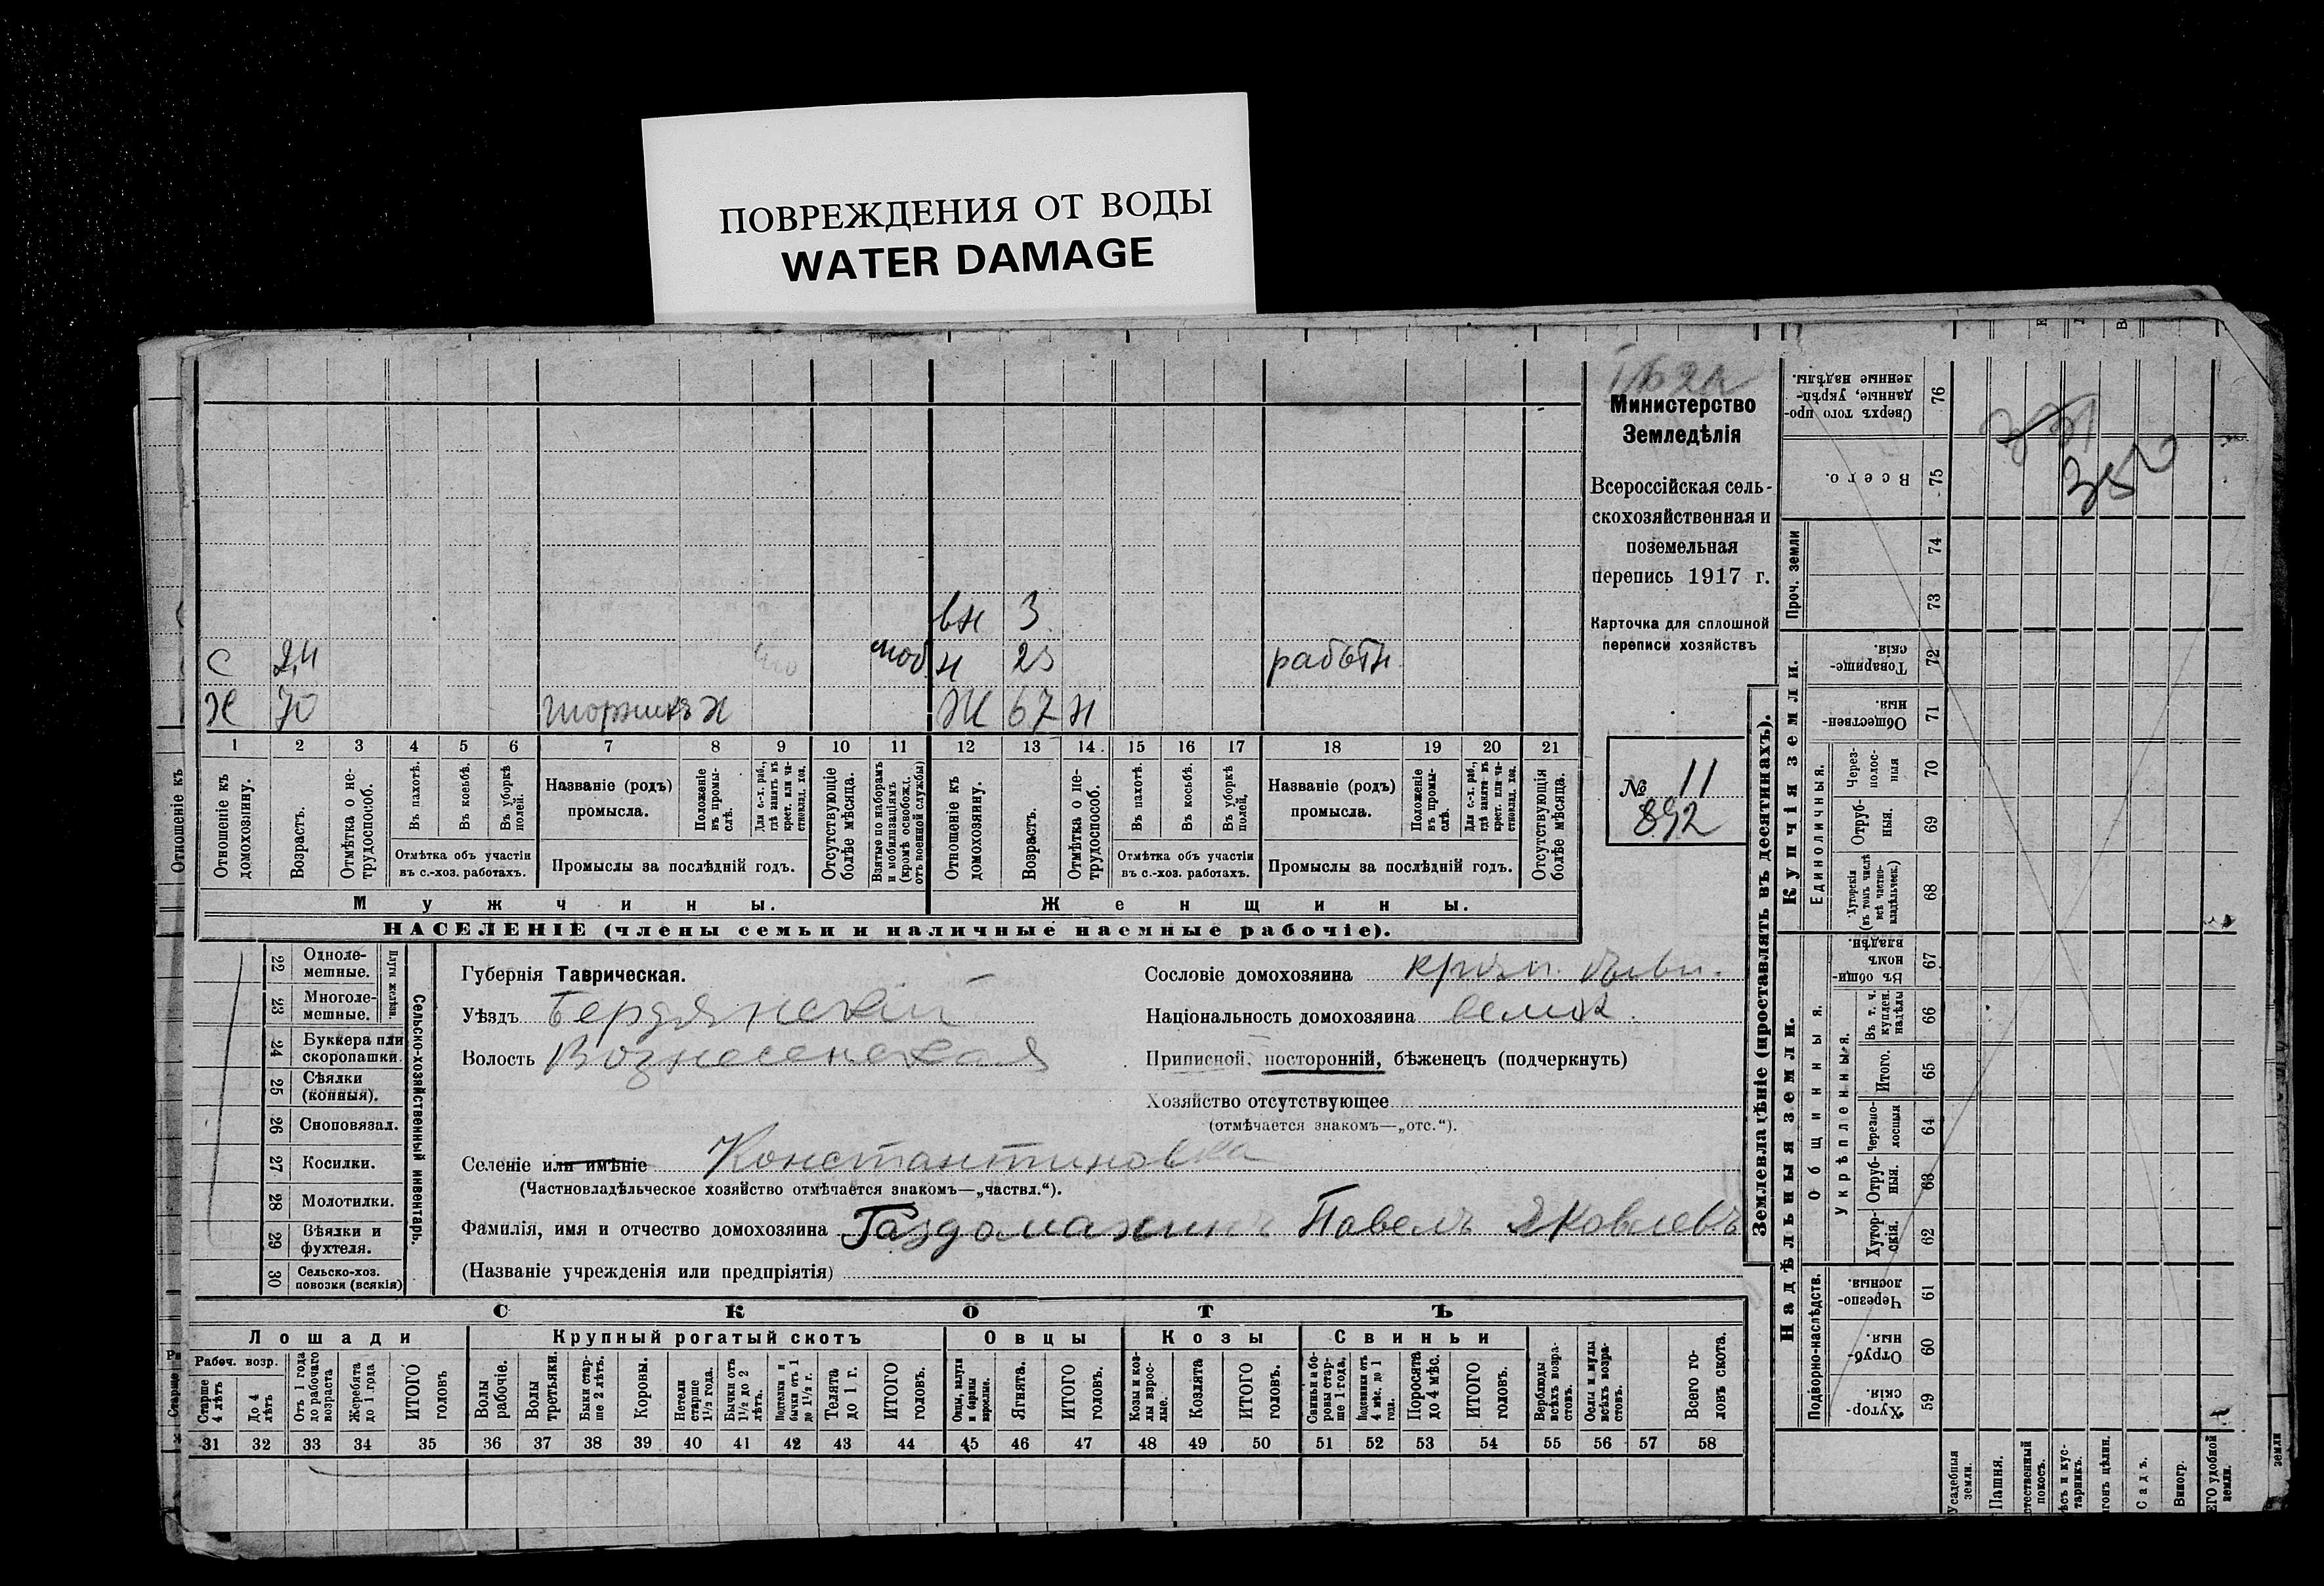 ПОВРЕЖДЕНИЯ ОТ ВОДЫ
WATER DAMAGE
Министерство
Земледѣлія
Всероссійская сель-
скохозяйственная и
поземельная
перепись 1917 г.
Карточка для сплошной
переписи хозяйствъ
№ 11
892
вн 3
С 24 моб н 23 работн.
Х 70 шорникъ Х Ж 67 н
1 2 3 4 5 6 7 8 9 10 11 12 13 14 15 16 17 18 19 20 21
Отношеніе къ домохозяину.
Возрастъ.
Отмѣтка о не-трудоспособ.
Въ пахотѣ.
Въ косьбѣ.
Въ уборкѣ полей.
Отмѣтка объ участіи въ с.-хоз. работахъ.
Названіе (родъ) промысла.
Положеніе въ промы-слѣ.
Для с.-х. раб., гдѣ занятъ въ крест. или ча-стновлад. хоз.
Промыслы за послѣдній годъ.
Отсутствующіе болѣе мѣсяца.
Взятые по наборамъ и мобилизаціямъ (кромѣ освобожд. отъ военной службы)
Отношеніе къ домохозяину.
Возрастъ.
Отмѣтка о не-трудоспособ.
Въ пахотѣ.
Въ косьбѣ.
Въ уборкѣ полей.
Отмѣтка объ участіи въ с.-хоз. работахъ.
Названіе (родъ) промысла.
Положеніе въ промы-слѣ.
Для с.-х. раб., гдѣ заняты въ крест. или ча-стновлад. хоз.
Промыслы за послѣдній годъ.
Отсутствующія болѣе мѣсяца.
Мужчины.
Женщины.
НАСЕЛЕНІЕ (члены семьи и наличные наемные рабочіе).
22 Одноле-мешные.
23 Многоле-мешные.
Плуги желѣзн.
24 Буккера или скоропашки.
25 Сѣялки (конныя).
26 Сноповязал.
27 Косилки.
28 Молотилки.
29 Вѣялки и фухтеля.
30 Сельско-хоз. повозки (всякія)
Сельско-хозяйственный инвентарь.
Губернія Таврическая.
Уѣздъ Бердянскій
Волость Вознесенская
Сословіе домохозяина
Національность домохозяина
Приписной, посторонній, бѣженецъ (подчеркнуть)
Хозяйство отсутствующее
(отмѣчается знакомъ—„отс.“).
Селеніе или имѣніе Константиновка
(Частновладѣльческое хозяйство отмѣчается знакомъ—„частвл.“).
Фамилія, имя и отчество домохозяина Газдомахинъ Павелъ Яковлевъ
(Названіе учрежденія или предпріятія)
СКОТЪ
Лошади Крупный рогатый скотъ Овцы Козы Свиньи
Рабоч. возр.
Старше 4 лѣтъ
До 4 лѣтъ
Отъ 1 года до рабочаго возраста
Жеребята до 1 года
ИТОГО головъ
Волы рабочіе.
Волы третьяки.
Быки стар-ше 2 лѣтъ.
Коровы.
Нетели старше 1½ года.
Бычки отъ 1½ до 2 лѣтъ.
Подтелки и бычки отъ 1 до 1½ г.
Телята до 1 г.
ИТОГО головъ.
Овцы, валухи и бараны взрослые.
Ягнята.
ИТОГО головъ.
Козы и коз-лы взрос-лые.
Козлята
ИТОГО головъ.
Свиньи и бо-ровы стар-ше 1 года.
Подсвинки отъ 4 мѣс. до 1 года.
Поросята до 4 мѣс.
ИТОГО головъ.
Верблюды всѣхъ возра-стовъ.
Ослы и мулы всѣхъ возра-стовъ.
Всего го-ловъ скота.
31 32 33 34 35 36 37 38 39 40 41 42 43 44 45 46 47 48 49 50 51 52 53 54 55 56 57 58
Землевладѣніе (проставлять въ десятинахъ).
Купчія земли.
Надѣльныя земли.
Проч. земли
Единоличныя.
Общинныя.
Укрѣпленныя.
Подворно-наслѣдств.
Сверхъ того про-данные, укрѣп-ленные надѣлы. 76
Всего. 75
74
73
Товарище-скія. 72
Обществен-ныя. 71
Через-полос-ныя 70
Отруб-ныя. 69
Хуторскія (въ томъ числѣ всѣ частно-владѣльческ.) 68
Въ общин-номъ владѣн. 67
Въ т. ч. куплен. надѣлы 66
Итого. 65
Черезпо-лосныя 64
Отруб-ныя. 63
Хутор-скія. 62
Черезпо-лосныя 61
Отруб-ныя 60
Хутор-скія. 59
Усадебныя земли.
Пашня.
Садъ.
Виногр.
352